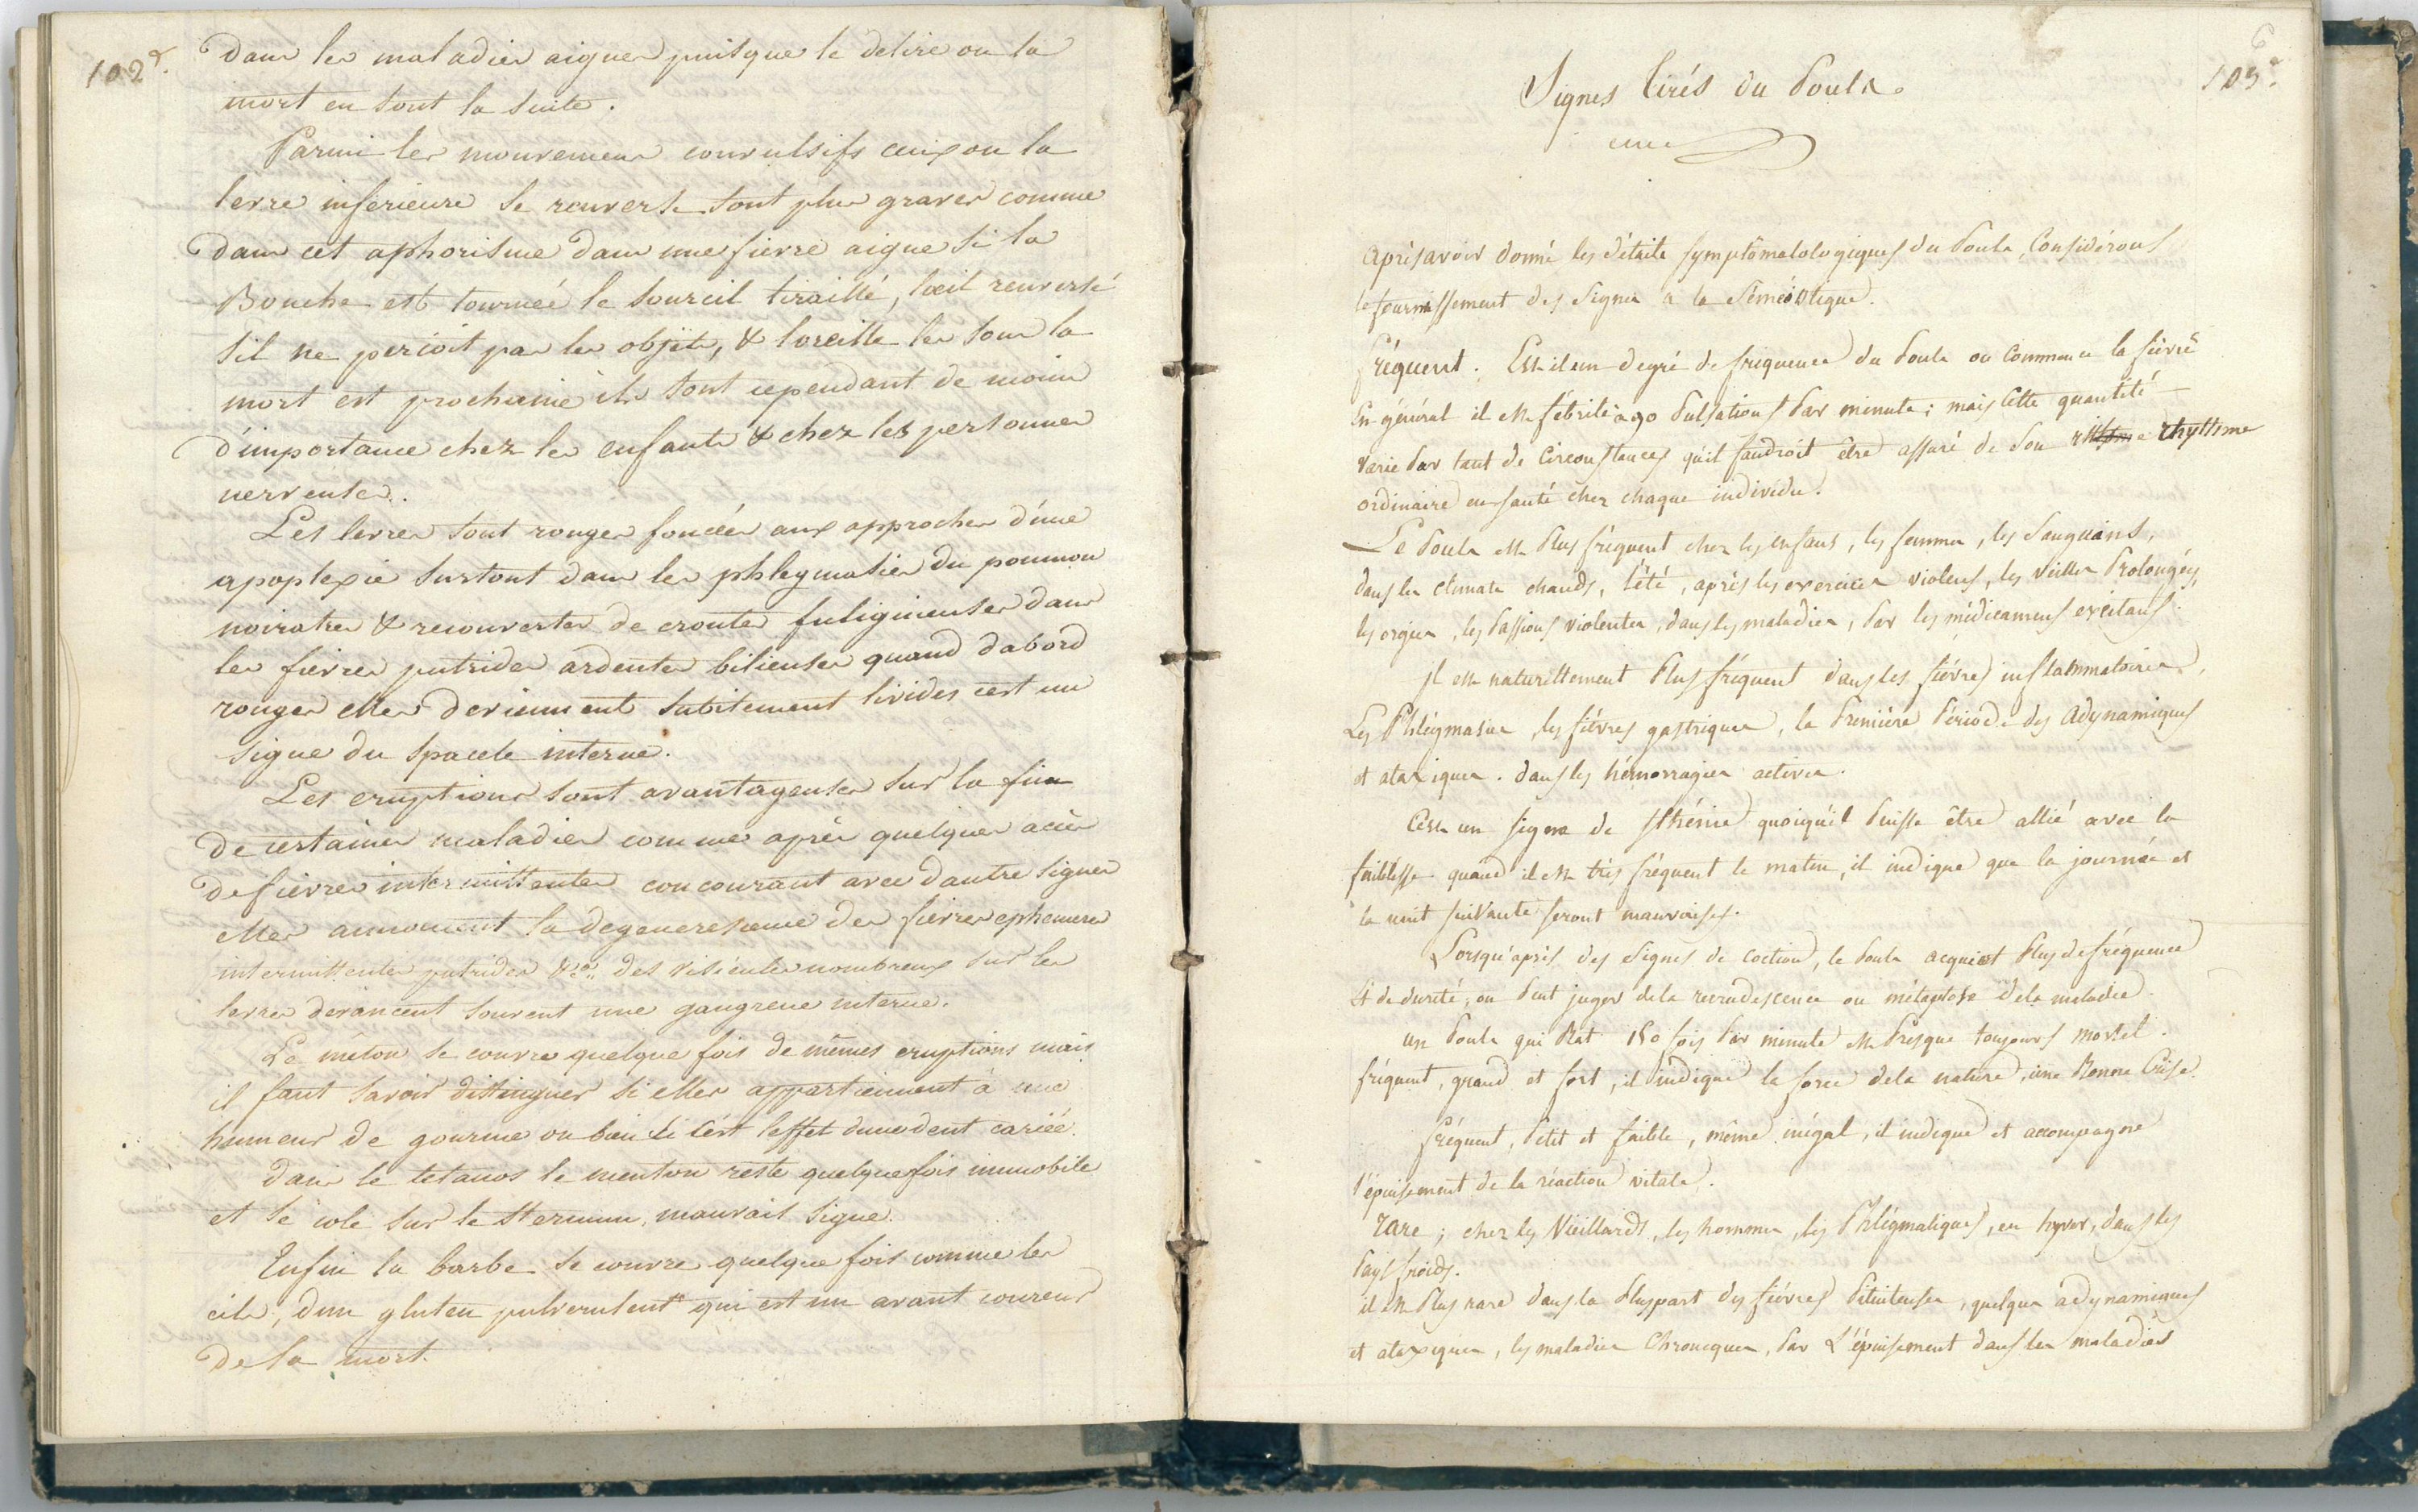 102e.
Dans les maladies aigues puisque le delire ou la
mort en sont la suite.
Parmi les mouvemens convulsifs ceux ou la
levre inferieure se renverse sont plus graves comme
dans cet aphorisme dans une fievre aigue si la
Bouche est tournée le sourcil tiraillé, l'oeil renversé
s'il ne percoit pas les objets, & loreille les sons la
mort est prochaine ils sont cependant de moins
d'importance chez les enfants & chez les personnes
nerveuses.
Les levres sont rouges foncées aux approches d'une
apoplexie surtout dans les phlegmasies du poumon
noiratres & recouvertes de croutes fuligineuses dans
les fievres putrides ardentes bilieuses quand dabord
rouges elles deviennent subitement livides cest un
signe du spacele interne.
Les eruptions sont avantageuses sur la fin
de certaines maladies comme après quelques accès
de fievres intermittentes concourant avec dautre signes
elles annoncent la degenerescence des fievres ephemeres
intermittentes putrides &ca. des vesicules nombreux sur les
levres devancent souvent une gangrene interne.
Le mêton se couvre quelque fois de mêmes eruptions mais
il faut savoir distinguer si elles appartiennent à une
humeur de gourme ou bien si c'est l'effet dune dent cariée.
dans le tetanos le menton reste quelquefois immobile
et se cole sur le sternum, mauvais signe.
Enfin la barbe se couvre quelque fois comme les
cils, dun gluten pulverulent qui est un avant coureur
de la mort.
6
103e.
Signes tirés du Pouls.
Après avoir donné les détails symptômatologiques du Pouls, Considérons
le fournissement des Signes a la Séméiotique.
fréquent. Est-il un degré de fréquence du Pouls ou Commence la fièvre
En général il est fébrile à 90 Pulsations Par minute; mais Cette quantité
varie Par tant de Circonstances qu'il faudroit être assuré de Son rhythme
ordinaire en santé chez chaque individu.
Le Pouls est Plus fréquent chez les enfans, les femmes, les Sanguins,
dans les climats chauds, l'été, après les exercices violens, les Veilles Prolongées,
les orgies, les Passions violentes, dans les maladies, Par les médicamens excitans.
il est naturellement Plus fréquent dans les fièvres inflammatoires,
Les Phlégmasies, les fièvres gastriques, la Première Période des Adynamiques
et ataxiques. dans les hémorragies actives.
C'est un signe de sthénie quoiqu'il Puisse être allié avec la
faiblesse quand il est très fréquent le matin, il indique que la journée et
la nuit suivante seront mauvaises.
Lorsqu'après des Signes de coction, le Pouls acquiert Plus de fréquence
et de dureté, on Peut juger de la recrudescence ou métaptose de la maladie.
un Pouls qui Bat 150 fois Par minute est Presque toujours mortel.
fréquent, grand et fort, il indique la force de la nature, une Bonne Crise.
fréquent, Petit et faible, même inégal, il indique et accompagne
l'épuisement de la réaction vitale.
rare; chez les Vieillards, les hommes, les Phlégmatiques, en hyver, dans les
Pays froids.
il est Plus rare dans la Pluspart des fièvres Pituiteuses, quelques adynamiques
et ataxiques, les maladies Chroniques, Par L'épuisement dans les maladies